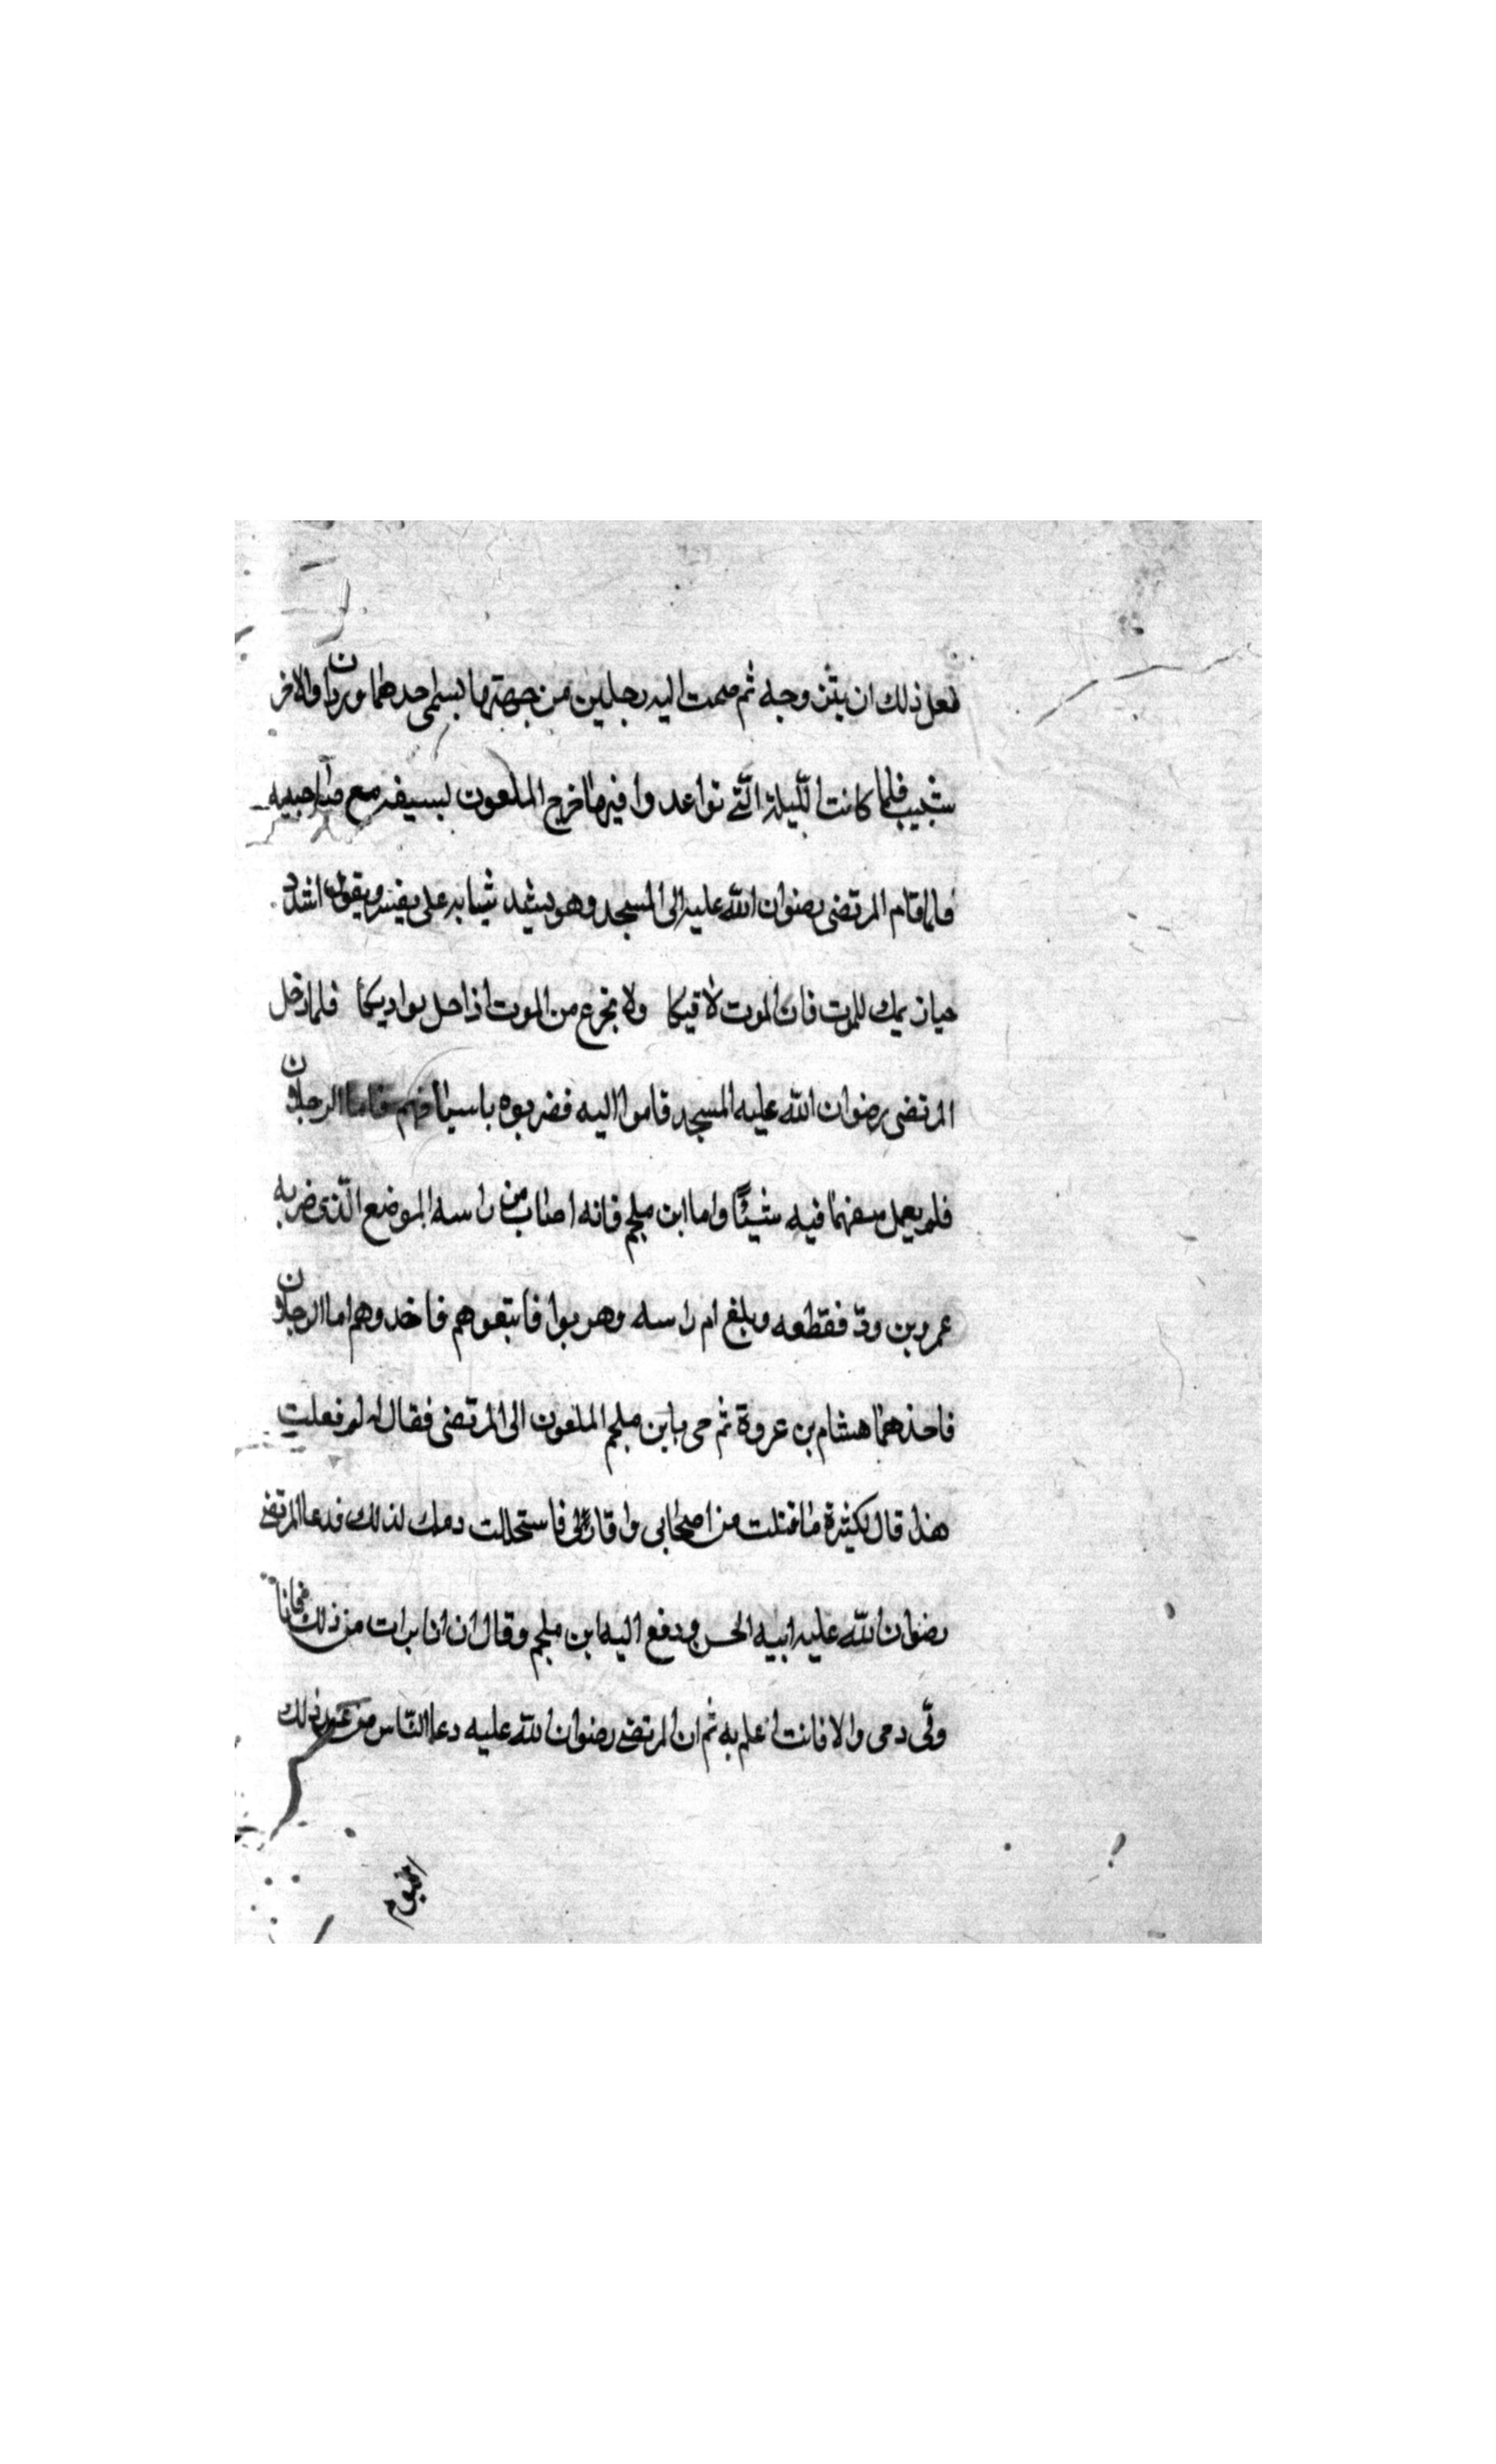 فعل ذلك ان يتزوجه ثم ضمت اليه رجلين من جهتها يسمى احدهما وردان والاخر
شبيب فلما كانت الليلة التي تواعدوا فيها خرج الملعون بسيفه مع صاحبيه
فلما قام المرتضى رضوان الله عليه الى المسجد وهو يشد ثيابه على ويقول اشدد
حيازيمك للموت فان الموت لاقيكا ولا تجزع من الموت اذا حل بواديكا فلما دخل
المرتضى رضوان الله عليه المسجد قاموا اليه فضربوه باسيافهم فاما الرجلان
فلم يعمل سيفهما فيه شيئًا واما ابن ملجم فانه اصاب من راسه الموضع الذي ضربه
عمرو بن ودّ فقطعه وبلغ ام راسه وهربوا فاتبعوهم فاخدوهم اما الرجلان
فاخذهما هشام بن عروة ثم جى بابن ملجم الملعون الى المرتضى فقال له لم فعلت
هذا قال لكثرة ما قتلت من اصحابي واقاربي فاستحللت دمك لذلك فدعا المرتضى
رضوان الله عليه ابنيه الحسن ودفع اليه ابن ملجم وقال ان انا برات من ذلك فانا
ولّى دمى والا فانت اعلم به ثم ان المرتضى رضوان الله عليه دعا النّاس من ذلك
اليوم